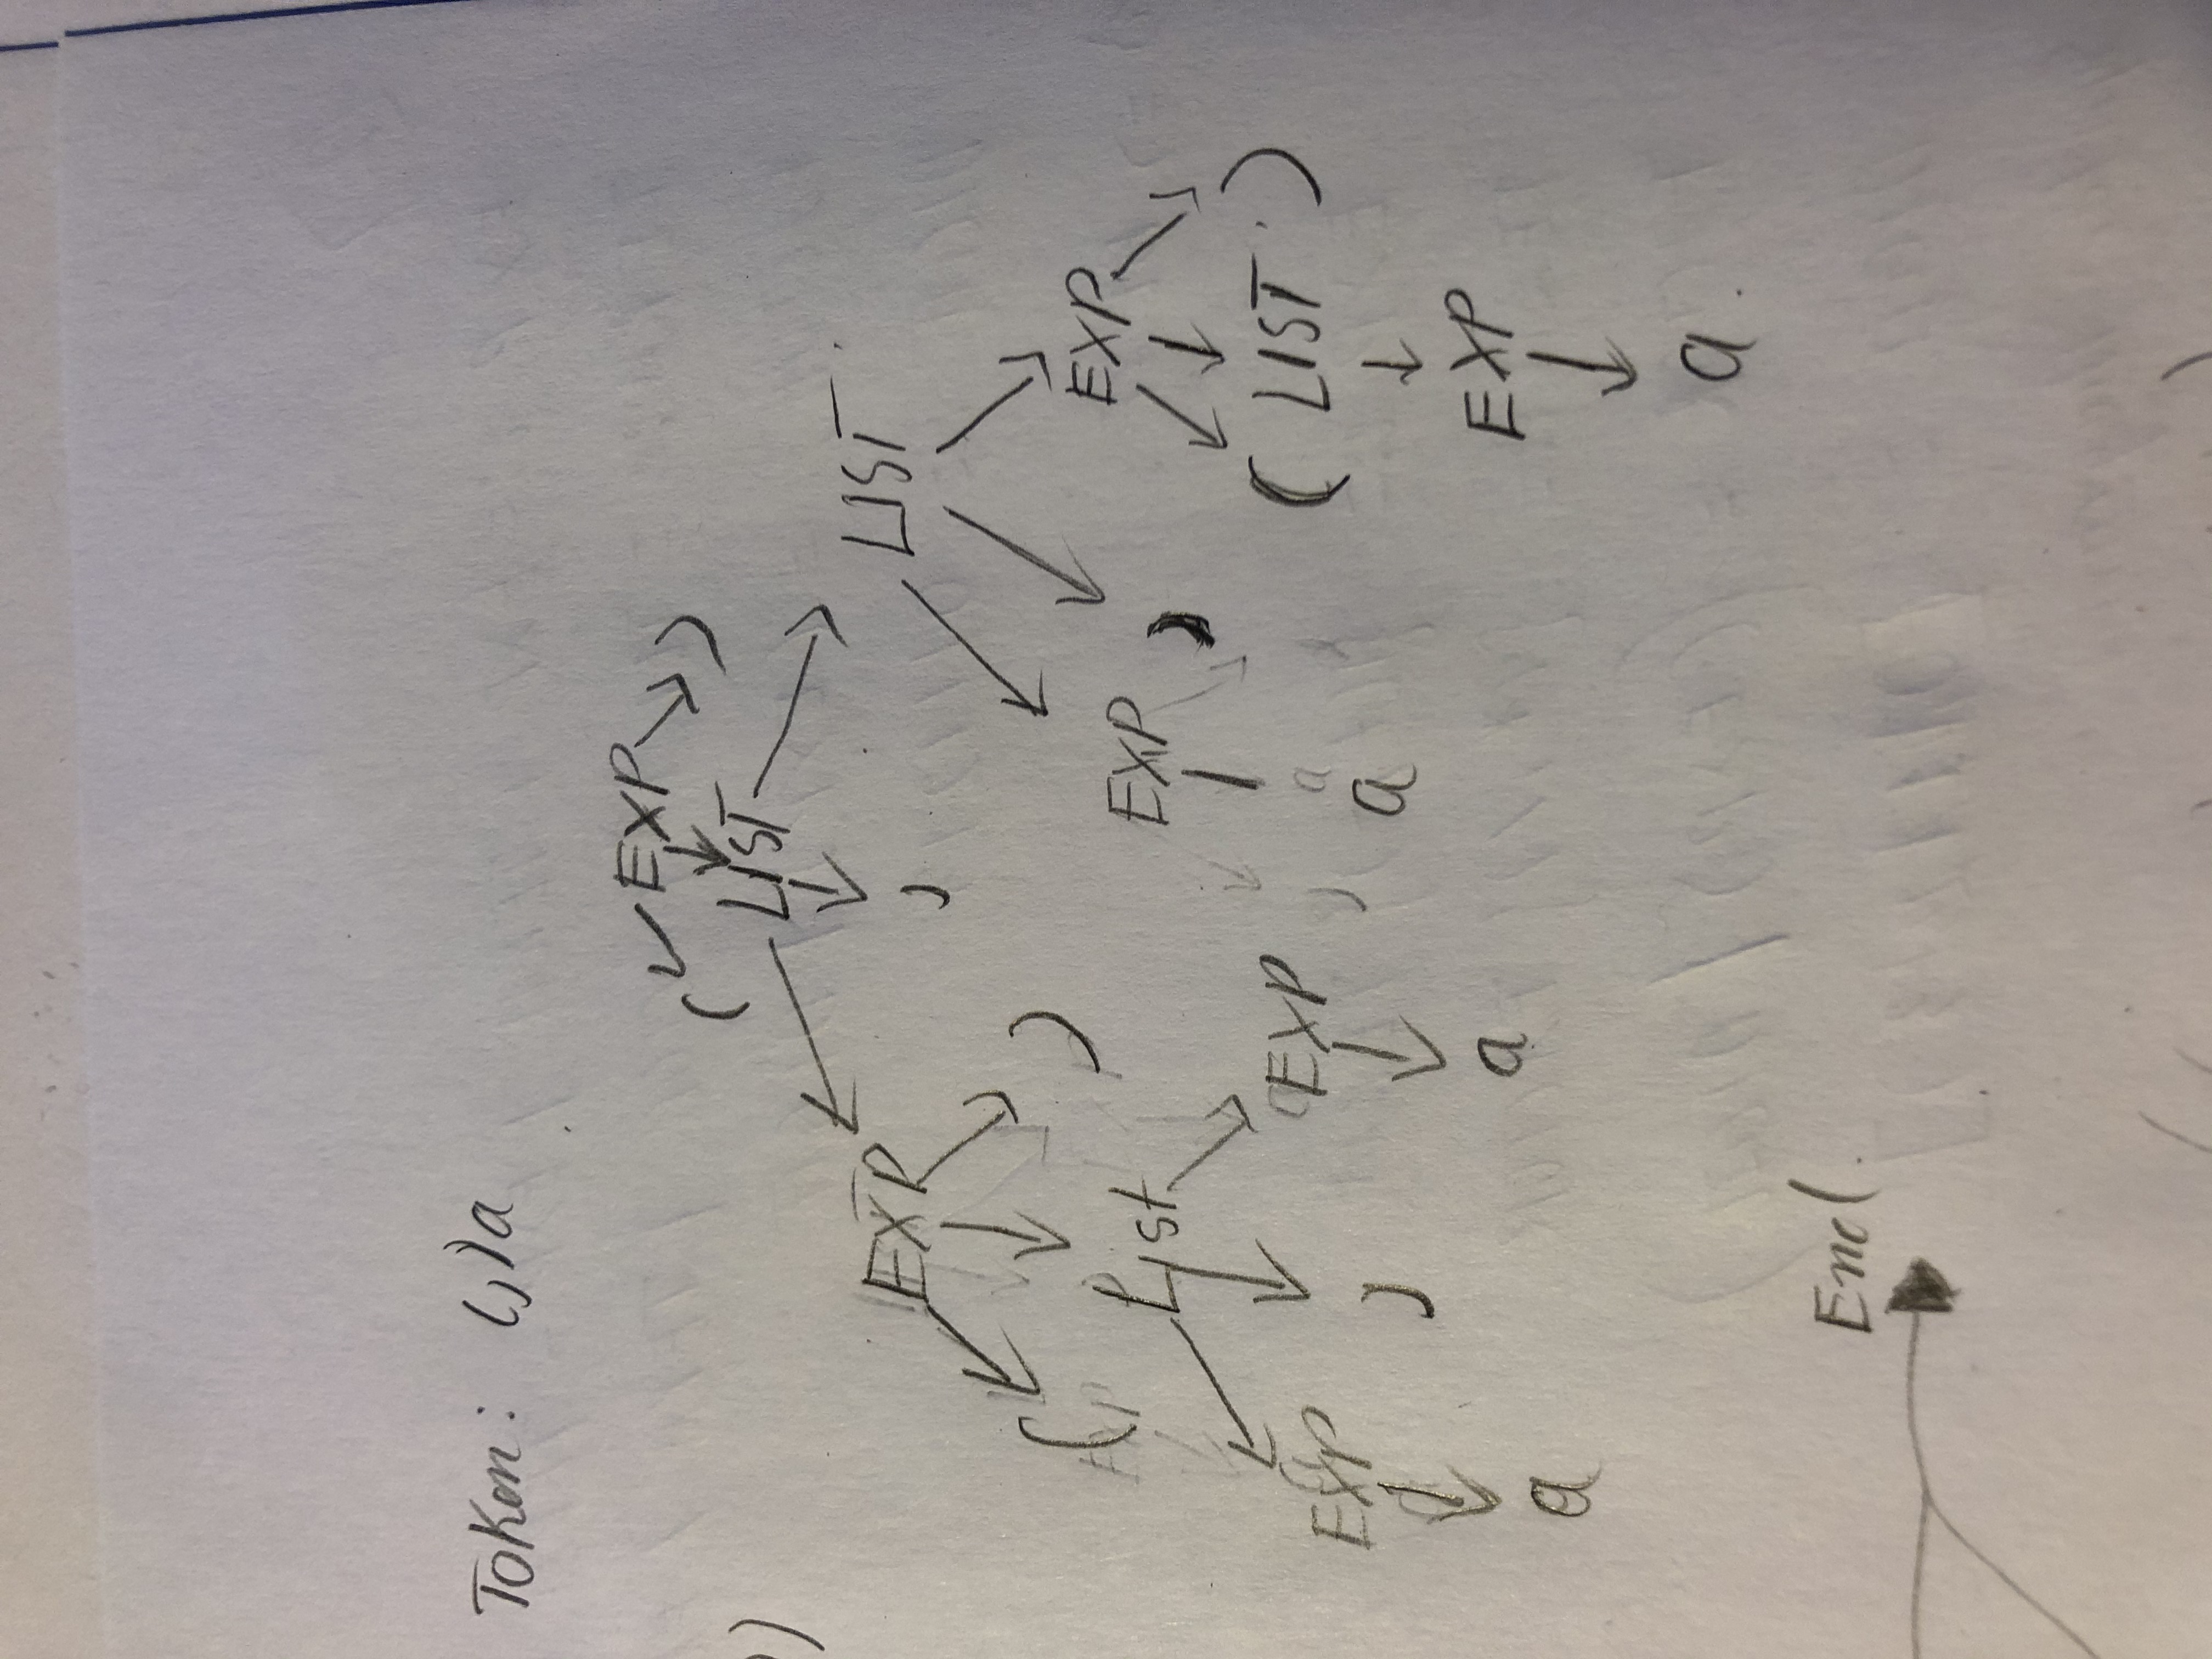 Token: (,)a
)
EXP
( )
LIST
EXP , LIST
( List ) EXP , EXP
EXP , EXP a ( LIST )
a a EXP
a
End.